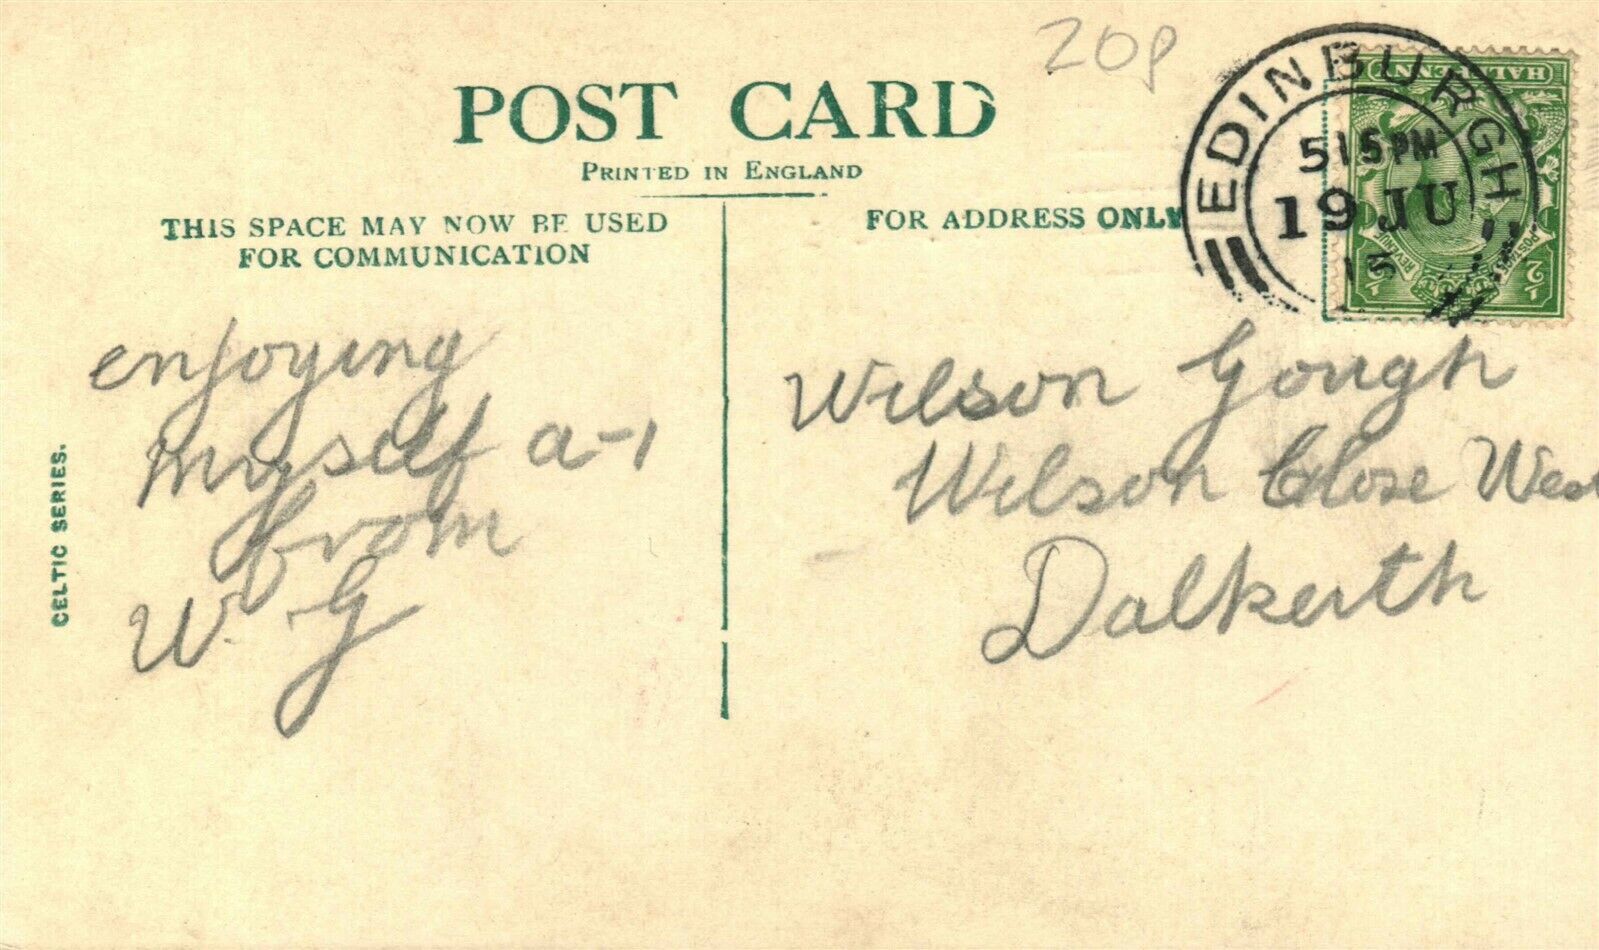 20p
POST CARD
PRINTED IN ENGLAND
THIS SPACE MAY NOW BE USED
FOR COMMUNICATION
FOR ADDRESS ONLY
EDINBURGH
515PM
19 JU
15
HALFPENNY
POSTAGE
REVENUE
½ ½
CELTIC SERIES.
enjoying
myself a-1
from
W. G
Wilson Gough
Wilson Close West
Dalkeith